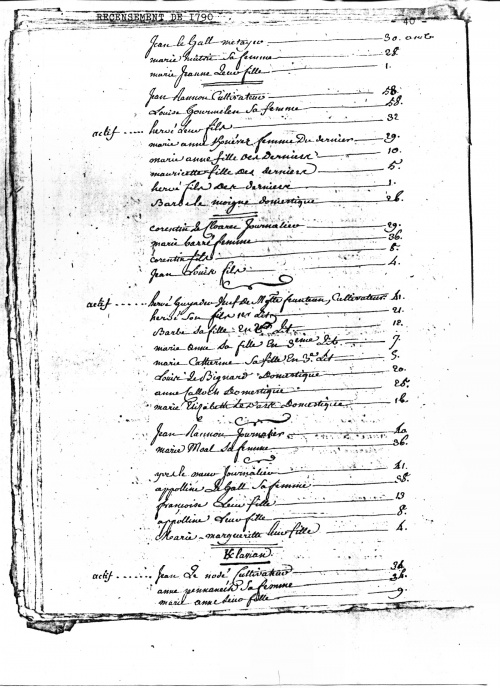 RECENSEMENT DE 1790 - 40 -
Jean le Gall metayer 30. ans
marie sa femme 28.
marie Jeanne Leur fille 1.
Jean Rannou Cultivateur 58.
Louise Gourmelen Sa femme 58.
actif hervé Leur fils 32
marie anne femme Du dernier 29.
marie anne fille des Derniers 10.
mauricette fille des derniers 5.
hervé fils Des derniers 1.
Barbe le moigne domestique 26.
corentin Le floarec Journalier 29.
marie barré femme 36.
corentin fils 8.
Jean Louis fils 4.
actif hervé Guyader Veuf de feunteun, Cultivateur 41.
hervé Son fils 1er Lit 21.
Barbe Sa fille En Lit 12.
marie anne sa fille En 3eme Lit 7.
marie Catherine Sa fille En 3e Lit 5.
Louis Le Bignard Domestique 20.
anne Calloch Domestique 25.
marie Elizabeth Domestique 16.
Jean Rannou Journalier 40.
marie Moal Sa femme 36.
yves le Journalier 41.
appolline Le Gall Sa femme 38.
françoise Leur fille 13
appolline Leur fille 8.
Marie-marguerite leur fille 4.
Kslavian.
actif Jean Le nodé Cultivateur 34.
anne Sa femme 34.
marie anne leur fille 9.